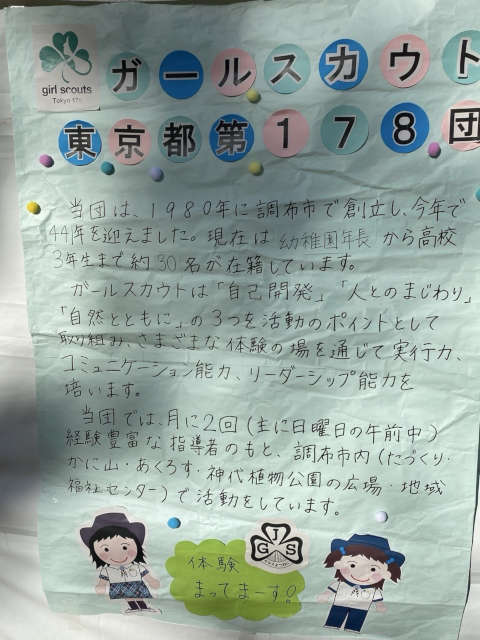 girl scouts
Tokyo 178
ガールスカウト
東京都第178団
当団は、1980年に調布市で創立し、今年で
44年を迎えました。現在は幼稚園年長から高校
3年生まで約30名が在籍しています。
ガールスカウトは「自己開発」「人とのまじわり」
「自然とともに」の3つを活動のポイントとして
取組み、さまざまな体験の場を通じて実行力、
コミュニケーション能力、リーダーシップ能力を
培います。
当団では、月に2回(主に日曜日の午前中)
経験豊富な指導者のもと、調布市内(たづくり・
かに山・あくろす・神代植物公園の広場・地域
福祉センター)で活動をしています。
JGS
体験
まってまーす!